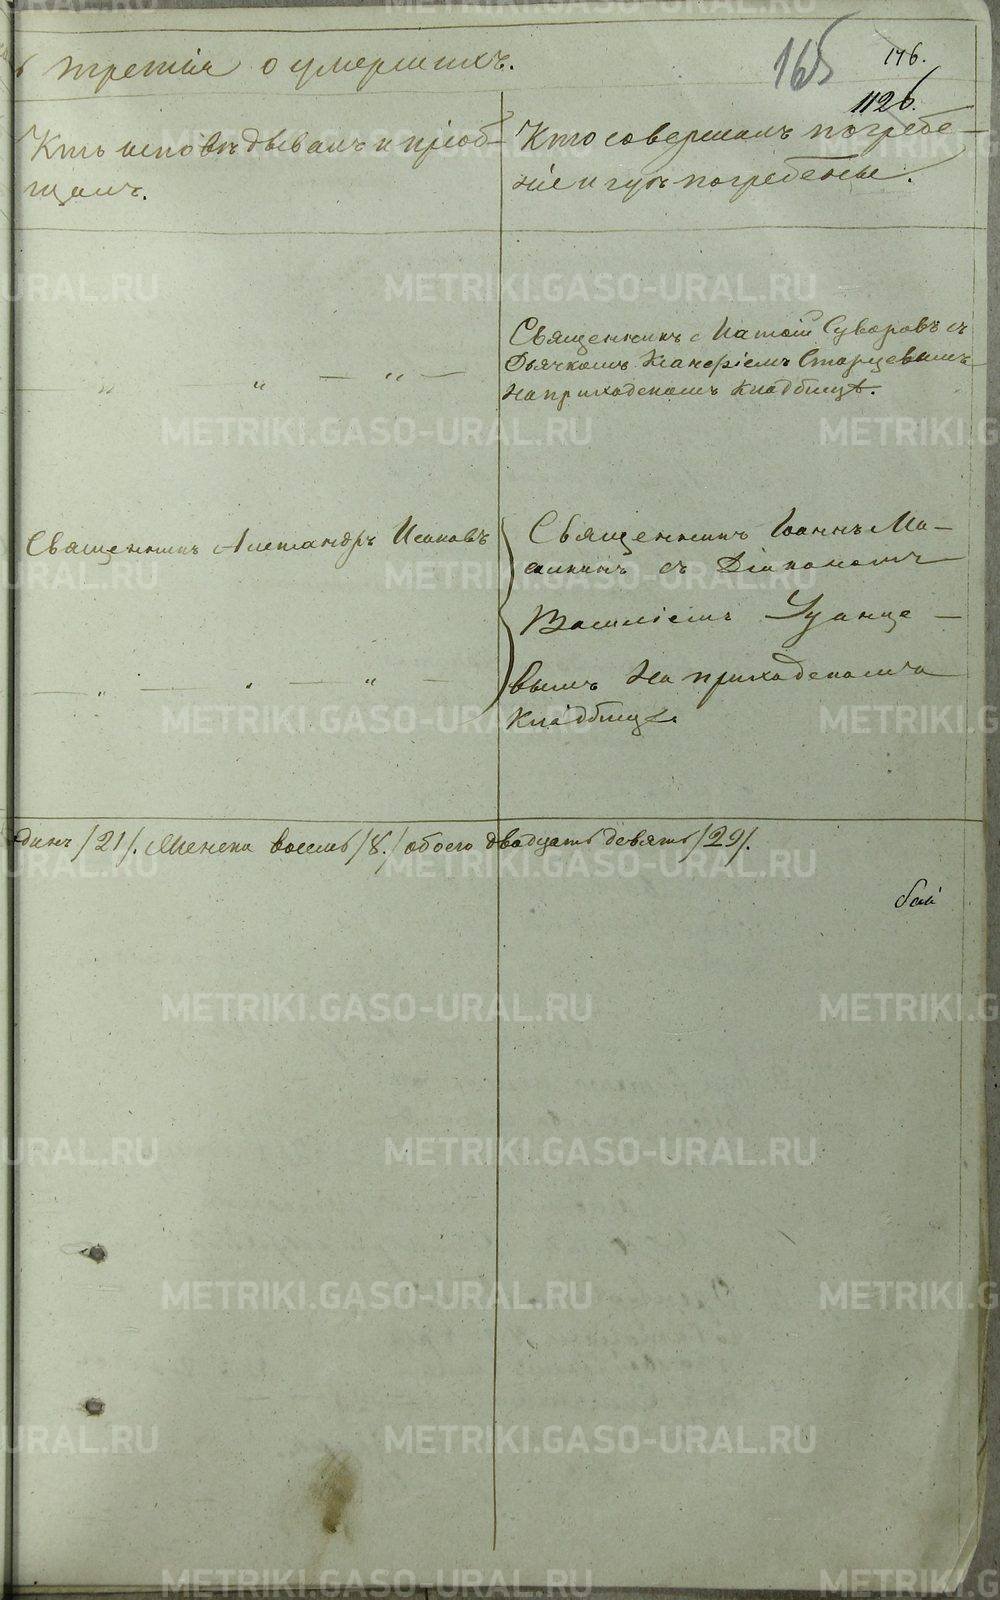 третія о умершихъ.
165
176.
1126.
Кто исповѣдывалъ и пріоб-
щалъ.
Кто совершалъ погребе-
ніе и гдѣ погребены.
Священникъ Игнатій Суворовъ съ
Дьячкомъ Ксанѳіемъ Старцевымъ
на приходскомъ кладбищѣ.
Священникъ Александръ Исаковъ
Священникъ Іоаннъ Ма-
съ Діакономъ
Василіемъ Удинце-
вымъ на приходскомъ
кладбищѣ.
динъ /21/. Женска восемь /8./ обоего двадцать девять /29/.
METRIKI.GASO-URAL.RU